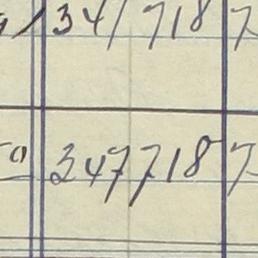 34/718 7
347718 7